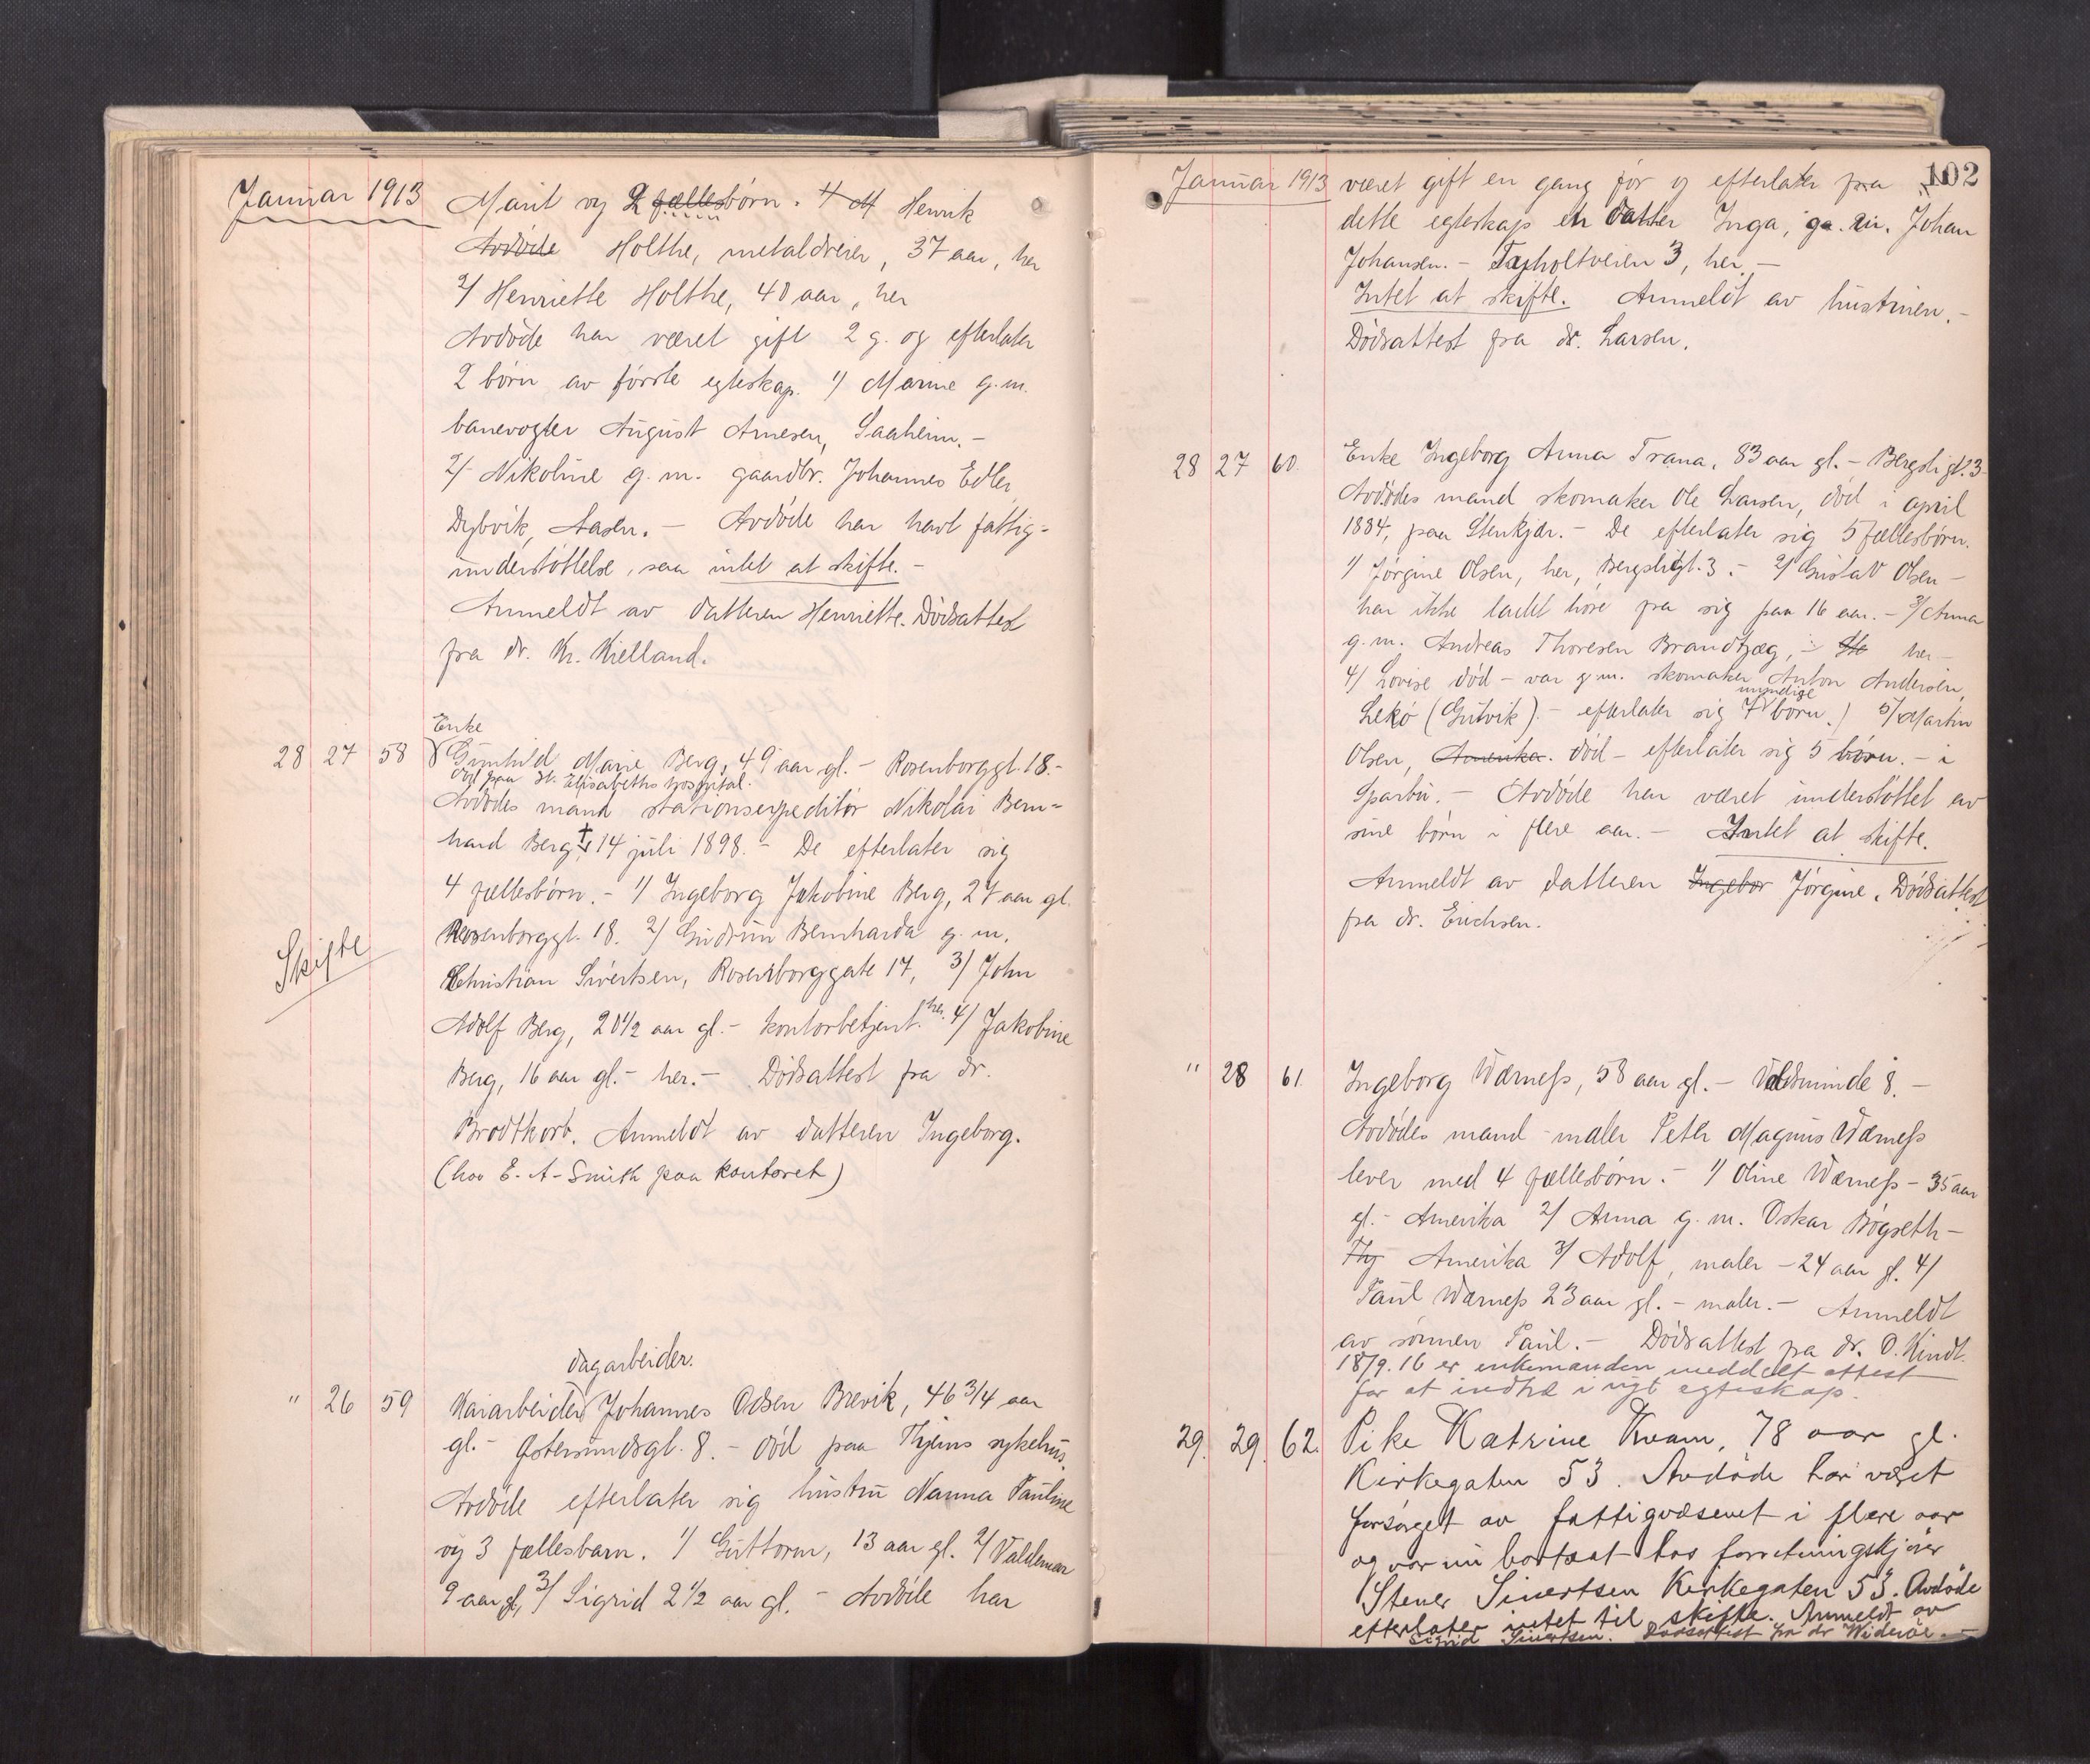 Januar 1913
Marit og 2 fællesbørn. 1/ M Henrik
Avdøde Holthe, metaldreier, 37 aar, her
2/ Henriette Holthe, 40 aar, her
Avdøde har været gift 2 g. og efterlater
2 børn av første egteskap. 1/ Marine g.m.
banevogter August Arnesen, Saaheim. -
2/ Nikoline g.m. gaardbr. Johannes Edler
Dybvik, Aasen. - Avdøde har havt fattig-
understøttelse, saa intet at skifte. -
Anmeldt av datteren Henriette. Dødsattest
fra dr. Kr. Kielland.
Enke
28 27 58 Gunhild Marie Berg, 49 aar gl. - Rosenborggt. 18. -
død paa St. Elisabeths hospital.
Avdødes mand stationsexpeditør Nikolai Bern-
hard Berg, † 14 juli 1898. - De efterlater sig
4 fællesbørn. - 1/ Ingeborg Jakobine Berg, 27 aar gl.
Rosenborggt. 18. 2/ Gudrun Bernharda g.m.
Skifte
Christian Sivertsen, Rosenborggate 17, 3/ John
Adolf Berg, 20 1/2 aar gl. - kontorbetjent. her. 4/ Jakobine
Berg, 16 aar gl. - her. - Dødsattest fra dr.
Brodtkorb. Anmeldt av datteren Ingeborg.
(hos E. A. Smith paa kontoret)
dagarbeider.
" 26 59 Johannes Odsen Brevik, 46 3/4 aar
gl. - Østersundsgt. 8. - død paa Thjems sykehus.
Avdøde efterlater sig hustru Nanna Pauline
og 3 fællesbarn. 1/ Guttorm, 13 aar gl. 2/ Valdemar
9 aar gl, 3/ Sigrid 2 1/2 aar gl. - Avdøde har
102
Januar 1913 været gift en gang før og efterlater fra
dette egteskap en datter Inga, g.m. Johan
Johansen. - Tyholtveien 3, her. -
Intet at skifte. Anmeldt av hustruen. -
Dødsattest fra dr. Larsen.
28 27 60. Enke Ingeborg Anna Trana, 83 aar gl. - Bergsligt. 3
Avdødes mand skomaker Ole Larsen, død i april
1884, paa Stenkjær. - De efterlater sig 5 fællesbørn.
1/ Jørgine Olsen, her, Bergsligt. 3. - 2/ Gustav Olsen -
har ikke ladet høre fra sig paa 16 aar. - 3/ Anna
g.m. Andreas Thoresen Brandtzæg, - her -
4/ Lovise død - var g.m. skomaker Anton Andersen,
myndige
Lekø (Gutvik). - efterlater sig 7 børn.) 5/ Martin
Olsen, Amerika. død - efterlater sig 5 børn. - i
Sparbu. - Avdøde har været understøttet av
sine børn i flere aar. - Intet at skifte.
Anmeldt av datteren Ingebor Jørgine. Dødsattest
fra dr. Erichsen.
" 28 61. Ingeborg Wærness, 58 aar gl. - Voldsminde 8. -
Avdødes mand - maler Peter Magnus Wærness
lever med 4 fællesbørn. - 1/ Oline Wærness - 35 aar
gl. - Amerika 2/ Anna g.m. Oskar Bøgseth -
Amerika 3/ Adolf, maler - 24 aar gl. 4/
Paul Wærness 23 aar gl. - maler. - Anmeldt
av sønnen Paul. - Dødsattest fra dr. O. Kindt.
18/9. 16 er enkemanden meddelt attest
for at indtræ i nyt egteskap.
29. 29. 62. Pike Katrine Kvam, 78 aar gl.
Kirkegaten 53. Avdøde har været
forsørget av fattigvæsenet i flere aar
og var nu bortsat hos forretningskjører
Stener Sivertsen Kirkegaten 53. Avdøde
efterlater intet til skifte. Anmeldt av
Sigrid Sivertsen. Dødsattest fra dr Widerøe. -